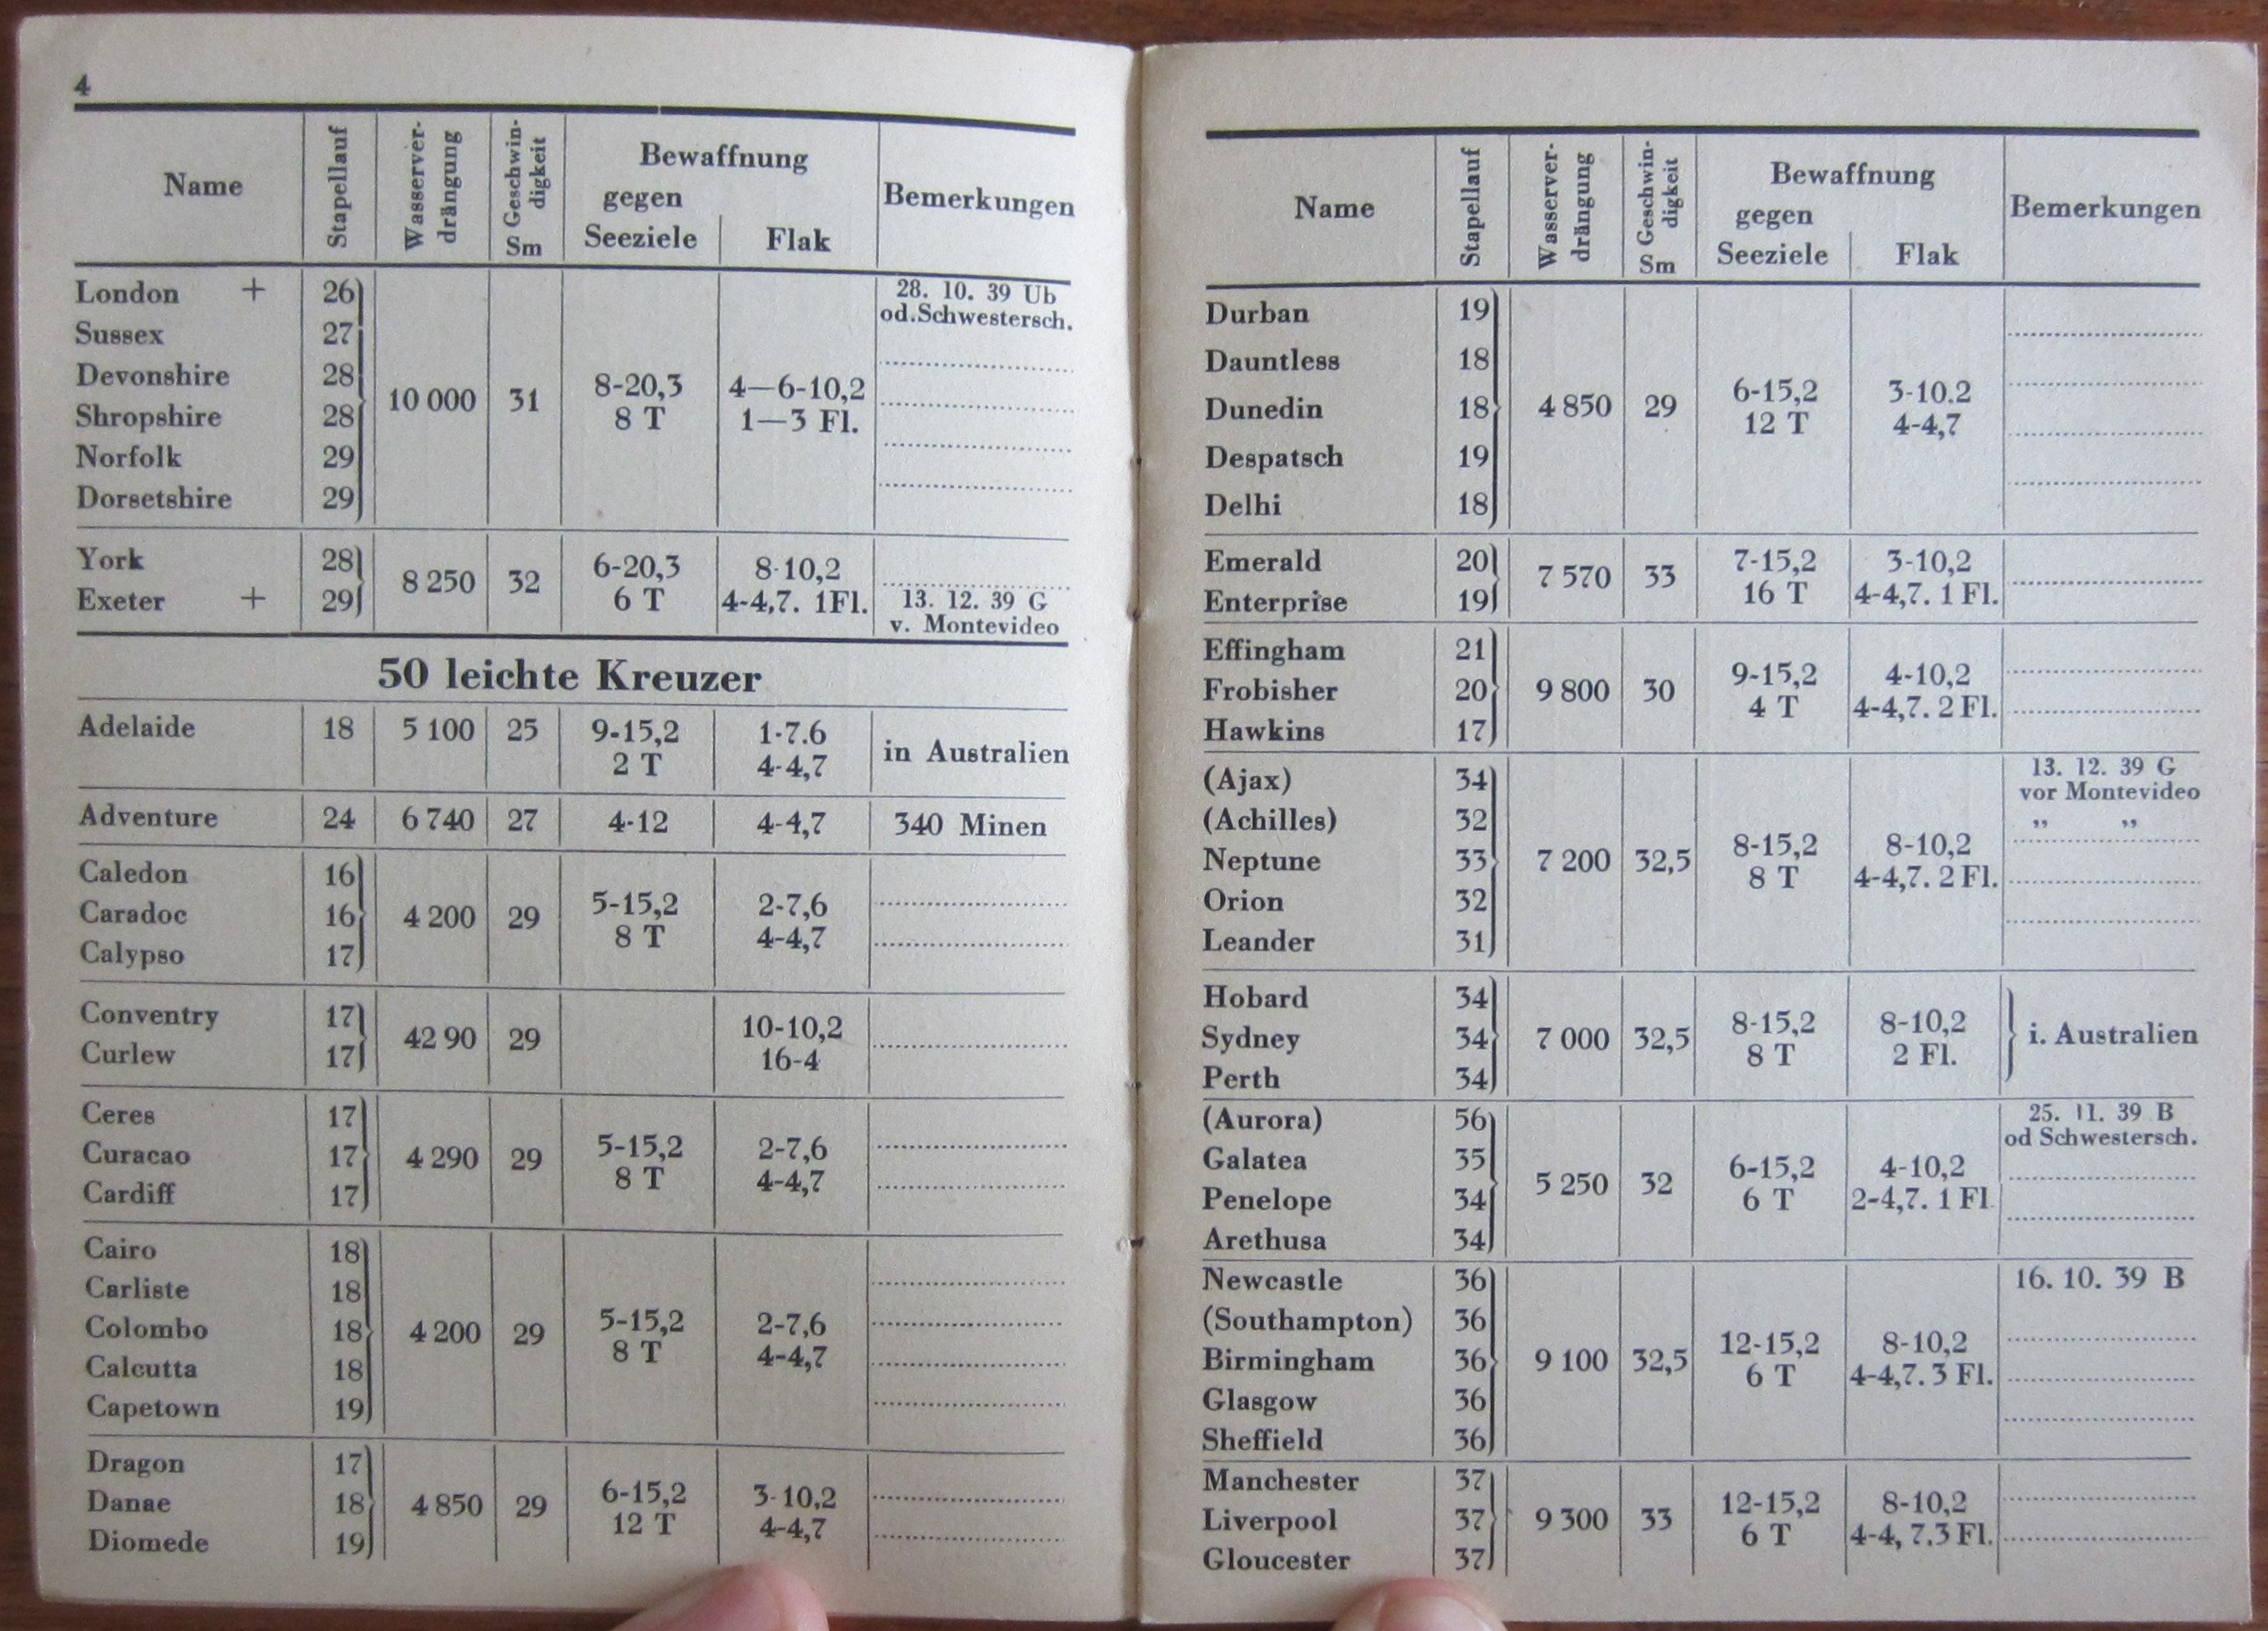 4
Name Stapellauf Wasserver-drängung Geschwin-digkeit Sm Bewaffnung gegen Seeziele Flak Bemerkungen
London + 26 28. 10. 39 Ub
od.Schwestersch.
Sussex 27
Devonshire 28
10 000 31 8-20,3 4—6-10,2
8 T 1—3 Fl.
Shropshire 28
Norfolk 29
Dorsetshire 29
York 28
8 250 32 6-20,3 8-10,2
6 T 4-4,7. 1Fl.
Exeter + 29 13. 12. 39 G
v. Montevideo
50 leichte Kreuzer
Adelaide 18 5 100 25 9-15,2 1-7.6 in Australien
2 T 4-4,7
Adventure 24 6 740 27 4-12 4-4,7 340 Minen
Caledon 16
Caradoc 16 4 200 29 5-15,2 2-7,6
8 T 4-4,7
Calypso 17
Conventry 17
42 90 29 10-10,2
16-4
Curlew 17
Ceres 17
Curacao 17 4 290 29 5-15,2 2-7,6
8 T 4-4,7
Cardiff 17
Cairo 18
Carliste 18
Colombo 18 4 200 29 5-15,2 2-7,6
8 T 4-4,7
Calcutta 18
Capetown 19
Dragon 17
Danae 18 4 850 29 6-15,2 3-10,2
12 T 4-4,7
Diomede 19
Name Stapellauf Wasserver-drängung Geschwin-digkeit Sm Bewaffnung gegen Seeziele Flak Bemerkungen
Durban 19
Dauntless 18
Dunedin 18 4 850 29 6-15,2 3-10.2
12 T 4-4,7
Despatsch 19
Delhi 18
Emerald 20
7 570 33 7-15,2 3-10,2
16 T 4-4,7. 1 Fl.
Enterprise 19
Effingham 21
Frobisher 20 9 800 30 9-15,2 4-10,2
4 T 4-4,7. 2 Fl.
Hawkins 17
(Ajax) 34 13. 12. 39 G
vor Montevideo
(Achilles) 32 ,, ,,
Neptune 33 7 200 32,5 8-15,2 8-10,2
8 T 4-4,7. 2 Fl.
Orion 32
Leander 31
Hobard 34
Sydney 34 7 000 32,5 8-15,2 8-10,2 i. Australien
8 T 2 Fl.
Perth 34
(Aurora) 56 25. 11. 39 B
od Schwestersch.
Galatea 35
5 250 32 6-15,2 4-10,2
6 T 2-4,7. 1 Fl
Penelope 34
Arethusa 34
Newcastle 36 16. 10. 39 B
(Southampton) 36
Birmingham 36 9 100 32,5 12-15,2 8-10,2
6 T 4-4,7. 3 Fl.
Glasgow 36
Sheffield 36
Manchester 37
Liverpool 37 9 300 33 12-15,2 8-10,2
6 T 4-4, 7.3 Fl.
Gloucester 37